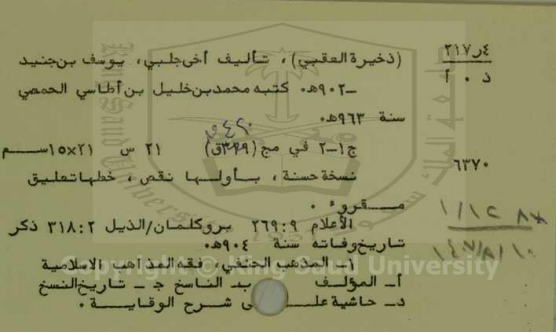 ٢١٧٫٤
(ذخيرة العقبى)، تأليف أخي جلبي، يوسف بن جنيد
ذ . أ
ـ٩٠٢هـ. كتبه محمد بن خليل بن أطاسي الحمصي
سنة ٩٦٣هـ.
ج١ـ٢ في مج (٣٢٩ق) ٢١ س ٢١×١٥ سم
٦٣٧٠
نسخة حسنة، بأولها نقص، خطها تعليق
مقروء.
الأعلام ٢٦٩:٩ بروكلمان/الذيل ٣١٨:٢ ذكر
تاريخ وفاته سنة ٩٠٤هـ.
أـ المذهب الحنفي، فقه المذاهب الاسلامية
أـ المؤلف بـ الناسخ جـ تاريخ النسخ
دـ حاشية على شرح الوقاية.
Copyright © King Saud University
King Saud University